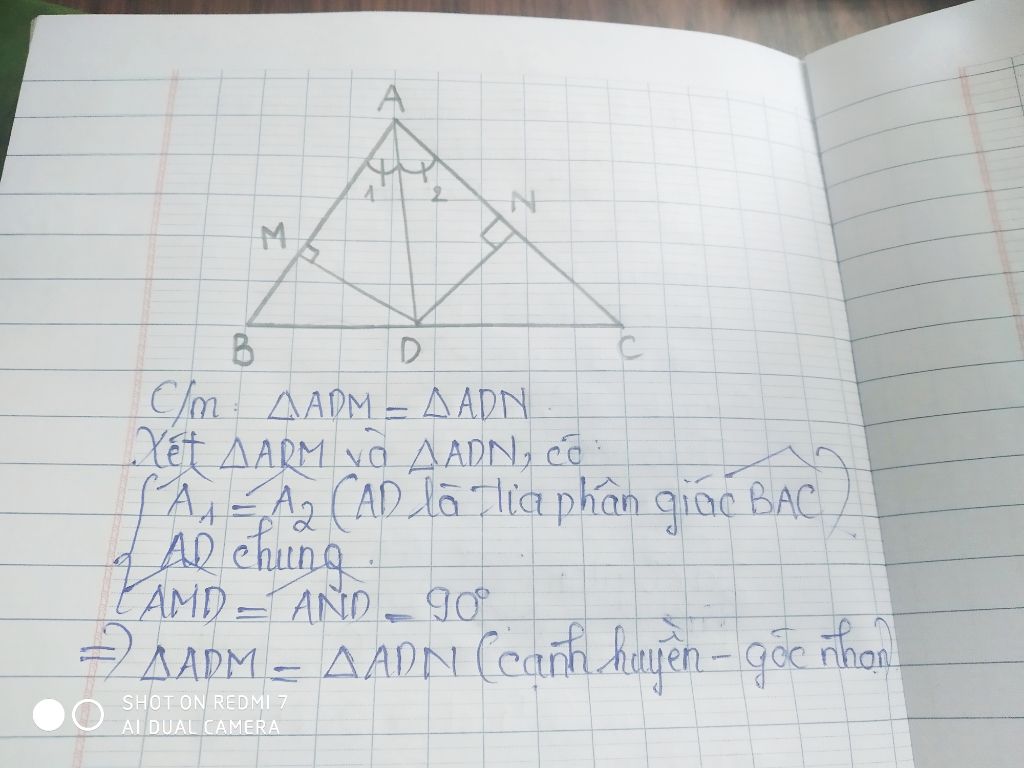 A
1 2
M N
B D C
C/m: △ADM = △ADN.
Xét △ADM và △ADN, có:
A₁ = A₂ (AD là tia phân giác BAC)
AD chung.
AMD = AND = 90°
=> △ADM = △ADN (cạnh huyền - góc nhọn)
SHOT ON REDMI 7
AI DUAL CAMERA